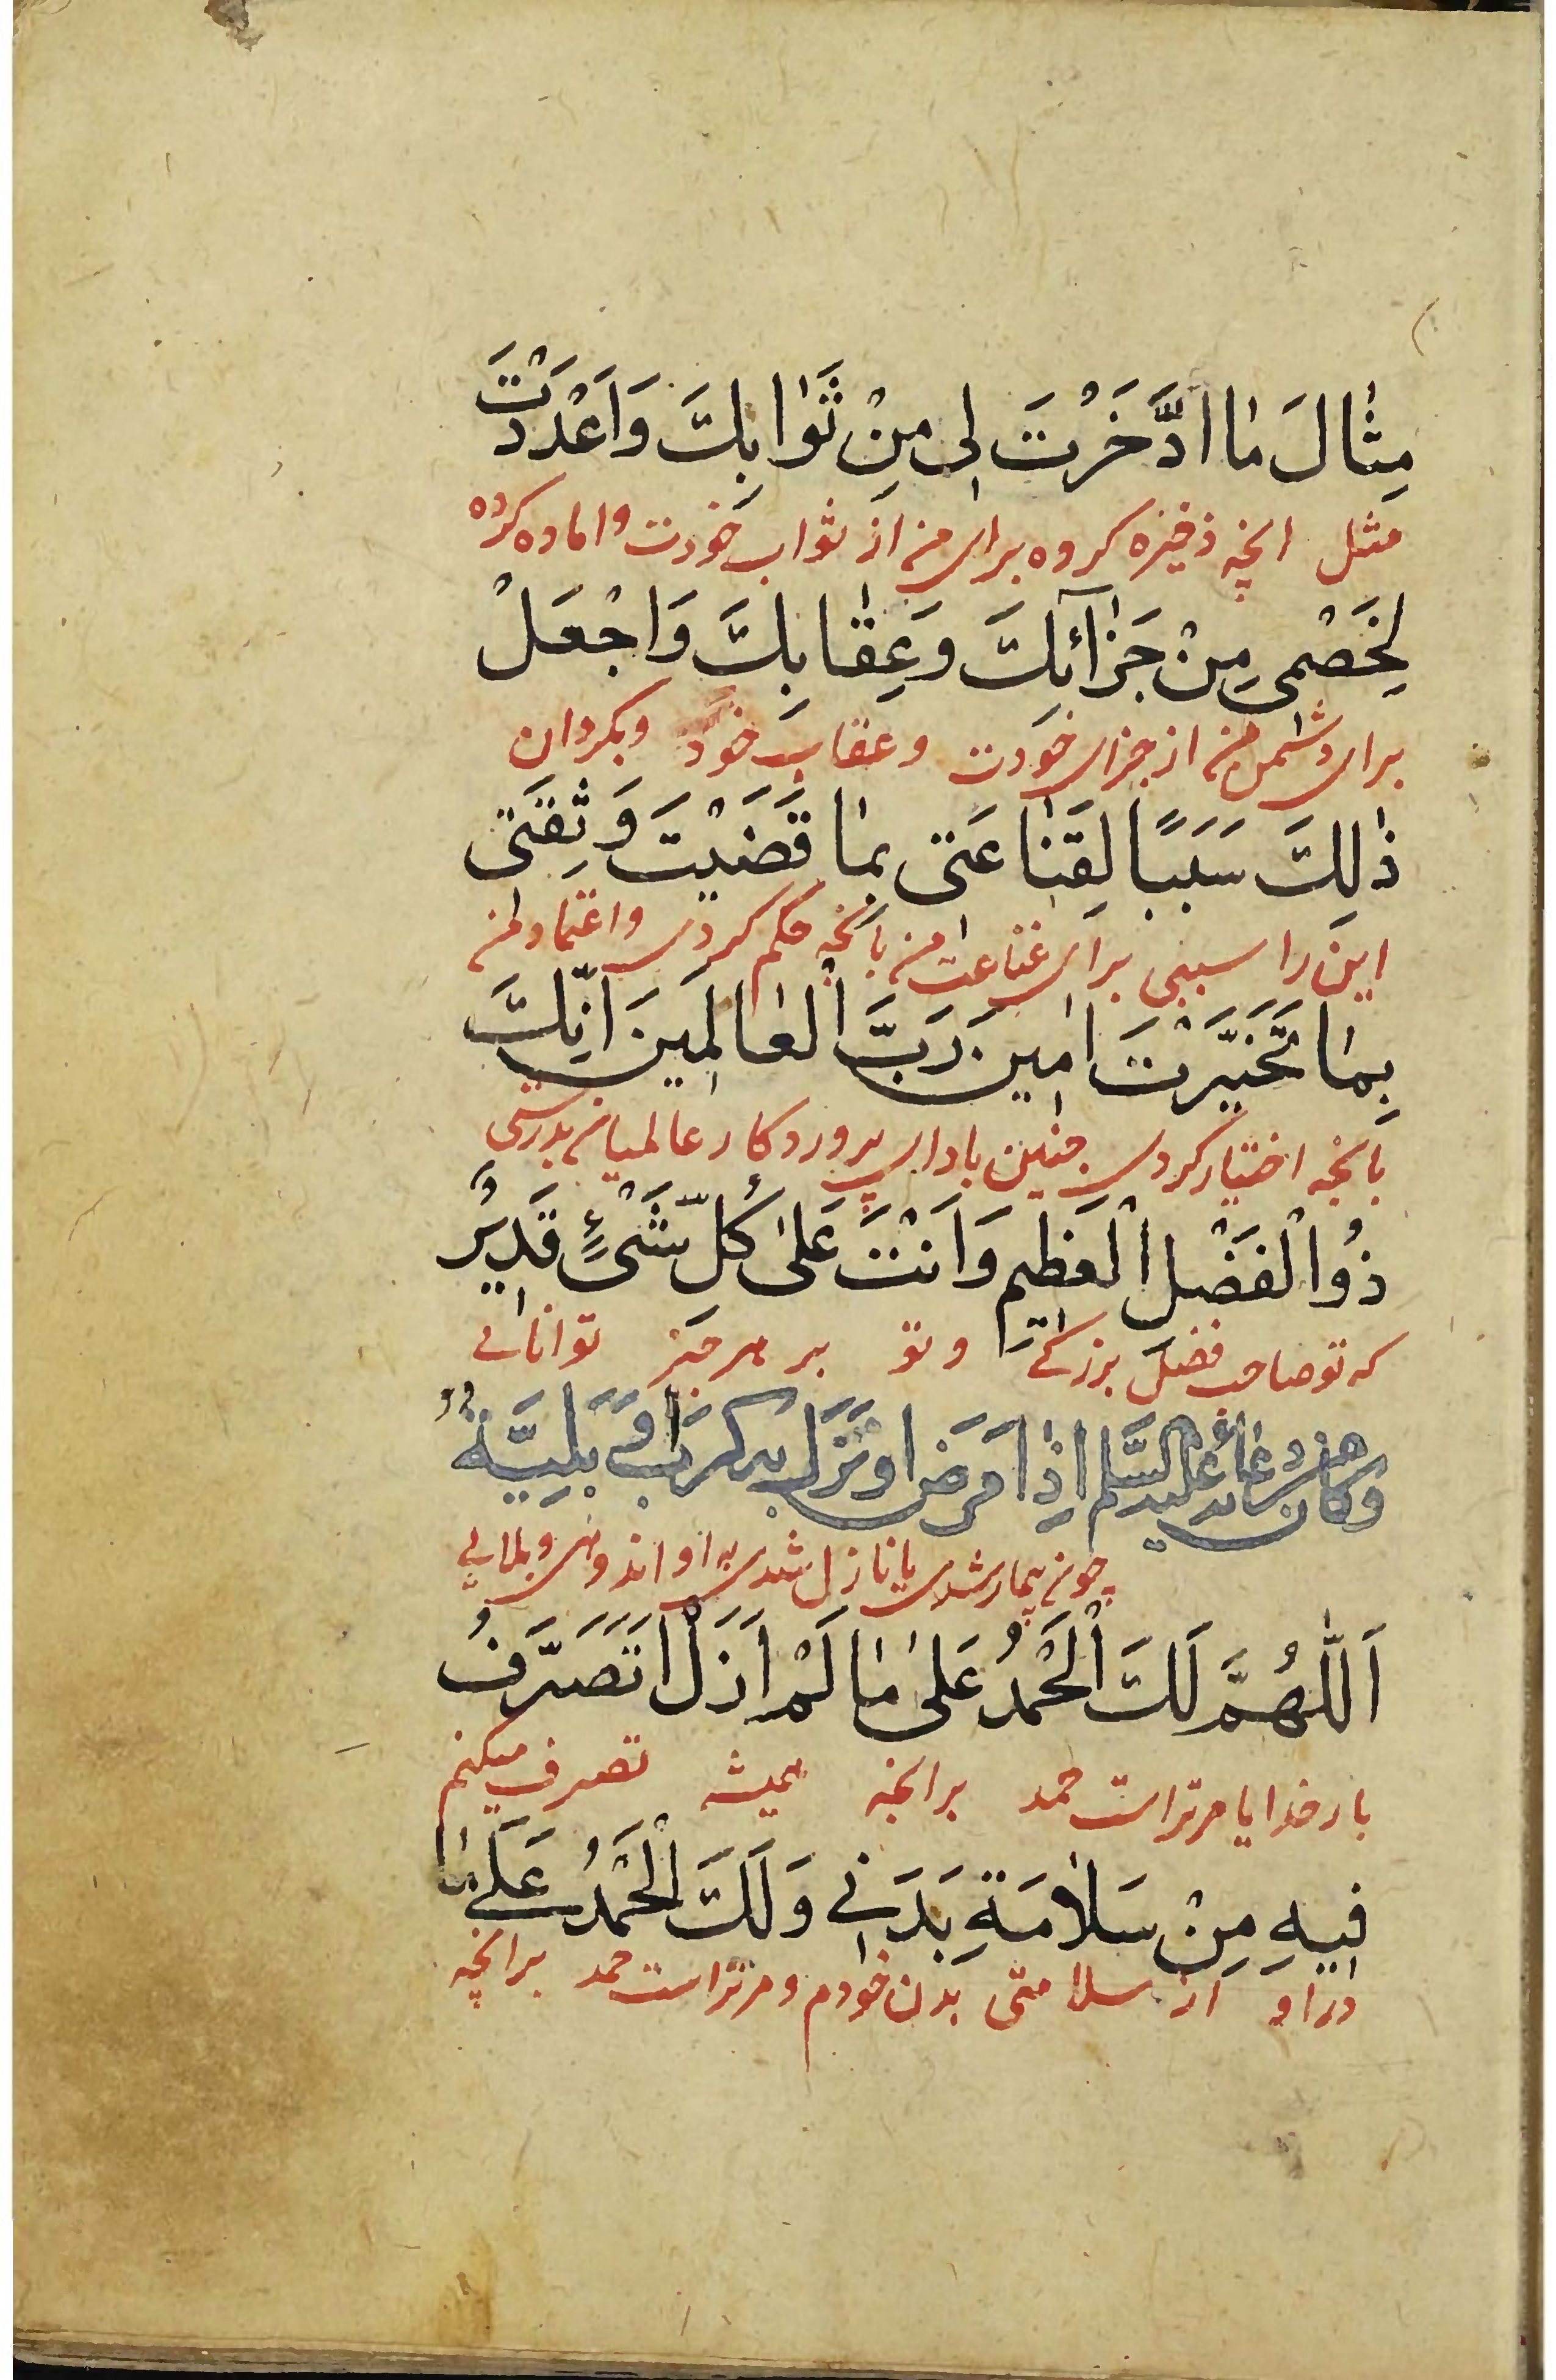 مِثٰالَ مٰا ادَّخَرْتَ لِی مِنْ ثَوٰابِكَ وَاَعْدَدْتَ
مثل انچه ذخیره کرده برای من از ثواب خودت و اماده کرده
لِخَصْمی مِنْ جَزٰآئِكَ وَعِقٰابِكَ وَاجْعَلْ
برای دشمن من از جزای خودت وعقاب خود وبکردان
ذٰلِكَ سَبَبًا لِقَنٰاعَتی بِمٰا قَضَیْتَ وَثِقَتی
این را سببی برای قناعت من بانچه حکم کردی واعتماد من
بِمٰا تَخَیَّرْتَ اٰمین رَبَّ الْعٰالَمینَ اِنَّكَ
بانچه اختیار کردی چنین باد ای پروردکار عالمیان بدرستی
ذُوالْفَضْلِ الْعَظیمِ وَاَنْتَ عَلیٰ كُلِّ شَیْءٍ قَدیرٌ
که تو صاحب فضل بزرکی وتو بر هر چیز توانائی
وكان من دعائه علیه السّلم اِذٰا مَرِضَ اَوْ نَزَلَ بِه كَرْبٌ اَوْ بَلِیَّةٌ
چون بیمار شدی یا نازل شدی به او اندوهی وبلایی
اَللّٰهُمَّ لَكَ الْحَمْدُ عَلیٰ مٰا لَمْ اَزَلْ اَتَصَرَّفُ
بار خدایا مر تراست حمد برانچه همیشه تصرف میکنم
فیهِ مِنْ سَلاٰمَةِ بَدَنی وَلَكَ الْحَمْدُ عَلیٰ مٰا
در او از سلامتی بدن خودم ومر تراست حمد برانچه